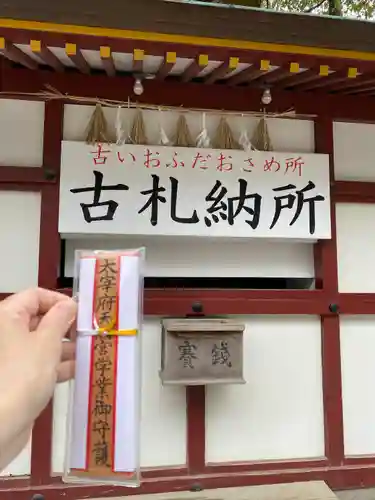 古いおふだおさめ所
古札納所
太宰府天満宮学業御守護
賽銭